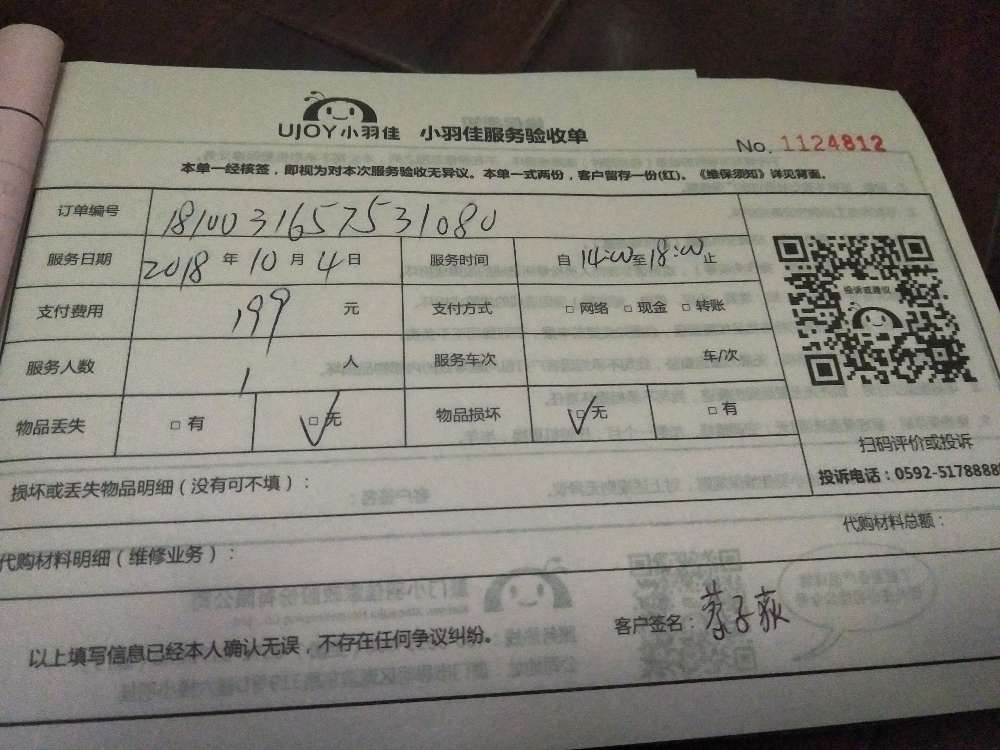 UJOY小羽佳 小羽佳服务验收单
No. 1124812
本单一经核签，即视为对本次服务验收无异议。本单一式两份，客户留存一份(红)。《维保须知》详见背面。
订单编号 181003165753 1080
服务日期 2018 年 10 月 4 日 服务时间 自 14:00 至 18:00 止
支付费用 199 元 支付方式 □ 网络 □ 现金 □ 转账
投诉或建议
服务人数 1 人 服务车次 车/次
物品丢失 □ 有 □ 无 物品损坏 □ 无 □ 有
扫码评价或投诉
损坏或丢失物品明细（没有可不填）：
投诉电话：0592-5178888
代购材料明细（维修业务）：
代购材料总额：
以上填写信息已经本人确认无误，不存在任何争议纠纷。
客户签名：